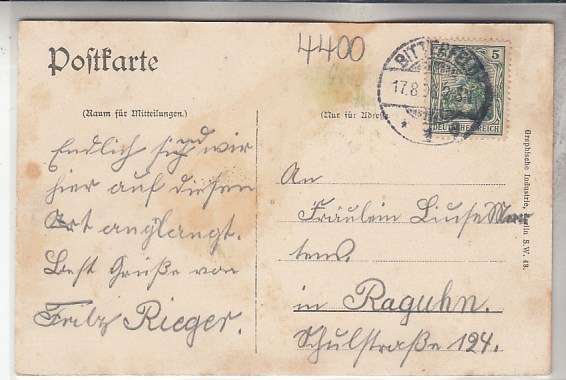 4400
Postkarte
BITTERFELD
17.8.
5
DEUTSCHES REICH
(Raum für Mitteilungen.)
(Nur für Adresse
Endlich sind wir
hier auf diesen
Ort anglangt.
Best Grüße von
Fritz Rieger.
An
Fräulein Liuse Mar
tens.
in Raguhn.
Schulstraße 124.
Graphische Industrie, Berlin S.W. 48.